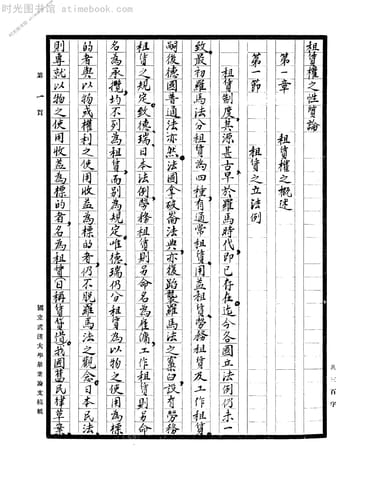 时光图书馆 - atimebook.com
租賃權之性質論
第一章 租賃權之概述
第一節 租賃之立法例
租賃制度，其源甚古，早於羅馬時代，即已存在，迄今各國立法例仍未一
致，最初羅馬法分租賃為四種，有通常租賃，用益租賃，勞務租賃及工作租賃，
嗣後德國普通法亦然，法國拿破崙法典亦復蹈襲羅馬法之窠臼，設有勞務
租賃之規定，於德瑞日本法例，勞務租賃則另命名為雇傭，工作租賃則另命
名為承攬，均不列為租賃而別為規定，唯德、瑞仍分租賃為以物之使用為標
的者與以物或權利之使用收益為標的者，仍不脫羅馬法之觀念，日本民法
則專就以物之使用收益為標的者，名為租賃，日稱賃貸借，我國舊民律草案
第一頁
國立武漢大學畢業論文稿紙
共三百字